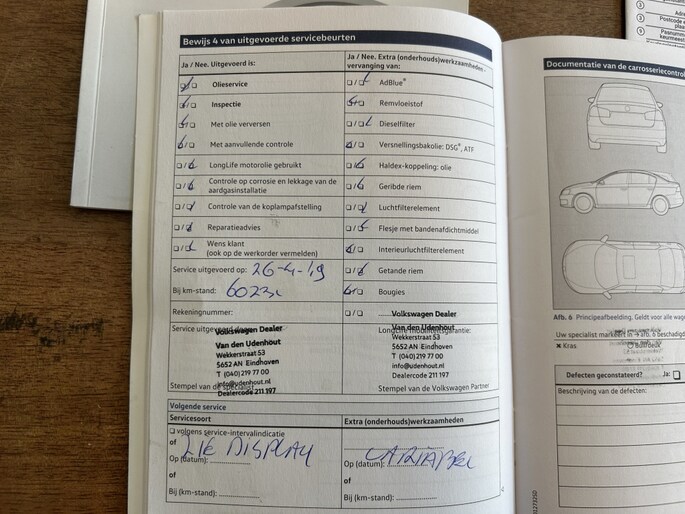 Bewijs 4 van uitgevoerde servicebeurten
Ja / Nee. Uitgevoerd is:
Olieservice
Inspectie
Met olie verversen
Met aanvullende controle
LongLife motorolie gebruikt
Controle op corrosie en lekkage van de
aardgasinstallatie
Controle van de koplampafstelling
Reparatieadvies
Wens klant
(ook op de werkorder vermelden)
Service uitgevoerd op: 26-4-19
Bij km-stand:
Rekeningnummer:
Service uitgevoerd
Volkswagen Dealer
Van den Udenhout
Wekkerstraat 53
5652 AN Eindhoven
T (040) 219 77 00
info@udenhout.nl
Dealercode 211 197
Stempel van de specialist
Ja / Nee. Extra (onderhouds)werkzaamheden -
vervanging van:
AdBlue®
Remvloeistof
Dieselfilter
Versnellingsbakolie: DSG®, ATF
Haldex-koppeling: olie
Geribde riem
Luchtfilterelement
Flesje met bandenafdichtmiddel
Interieurluchtfilterelement
Getande riem
Bougies
Volkswagen Dealer
Van den Udenhout
LongLife mobiliteitsgarantie:
Wekkerstraat 53
5652 AN Eindhoven
T (040) 219 77 00
info@udenhout.nl
Dealercode 211 197
Stempel van de Volkswagen Partner
Volgende service
Servicesoort
volgens service-intervalindicatie
of
ZIE DISPLAY
Op (datum):
of
Bij (km-stand):
Extra (onderhouds)werkzaamheden
VARIABEL
Op (datum):
of
Bij (km-stand):
Documentatie van de carrosseriecontrol
Afb. 6 Principeafbeelding. Geldt voor alle wage
Uw specialist markeert in → afb. 6 beschadigd
Kras
Defecten geconstateerd? Ja:
Beschrijving van de defecten: